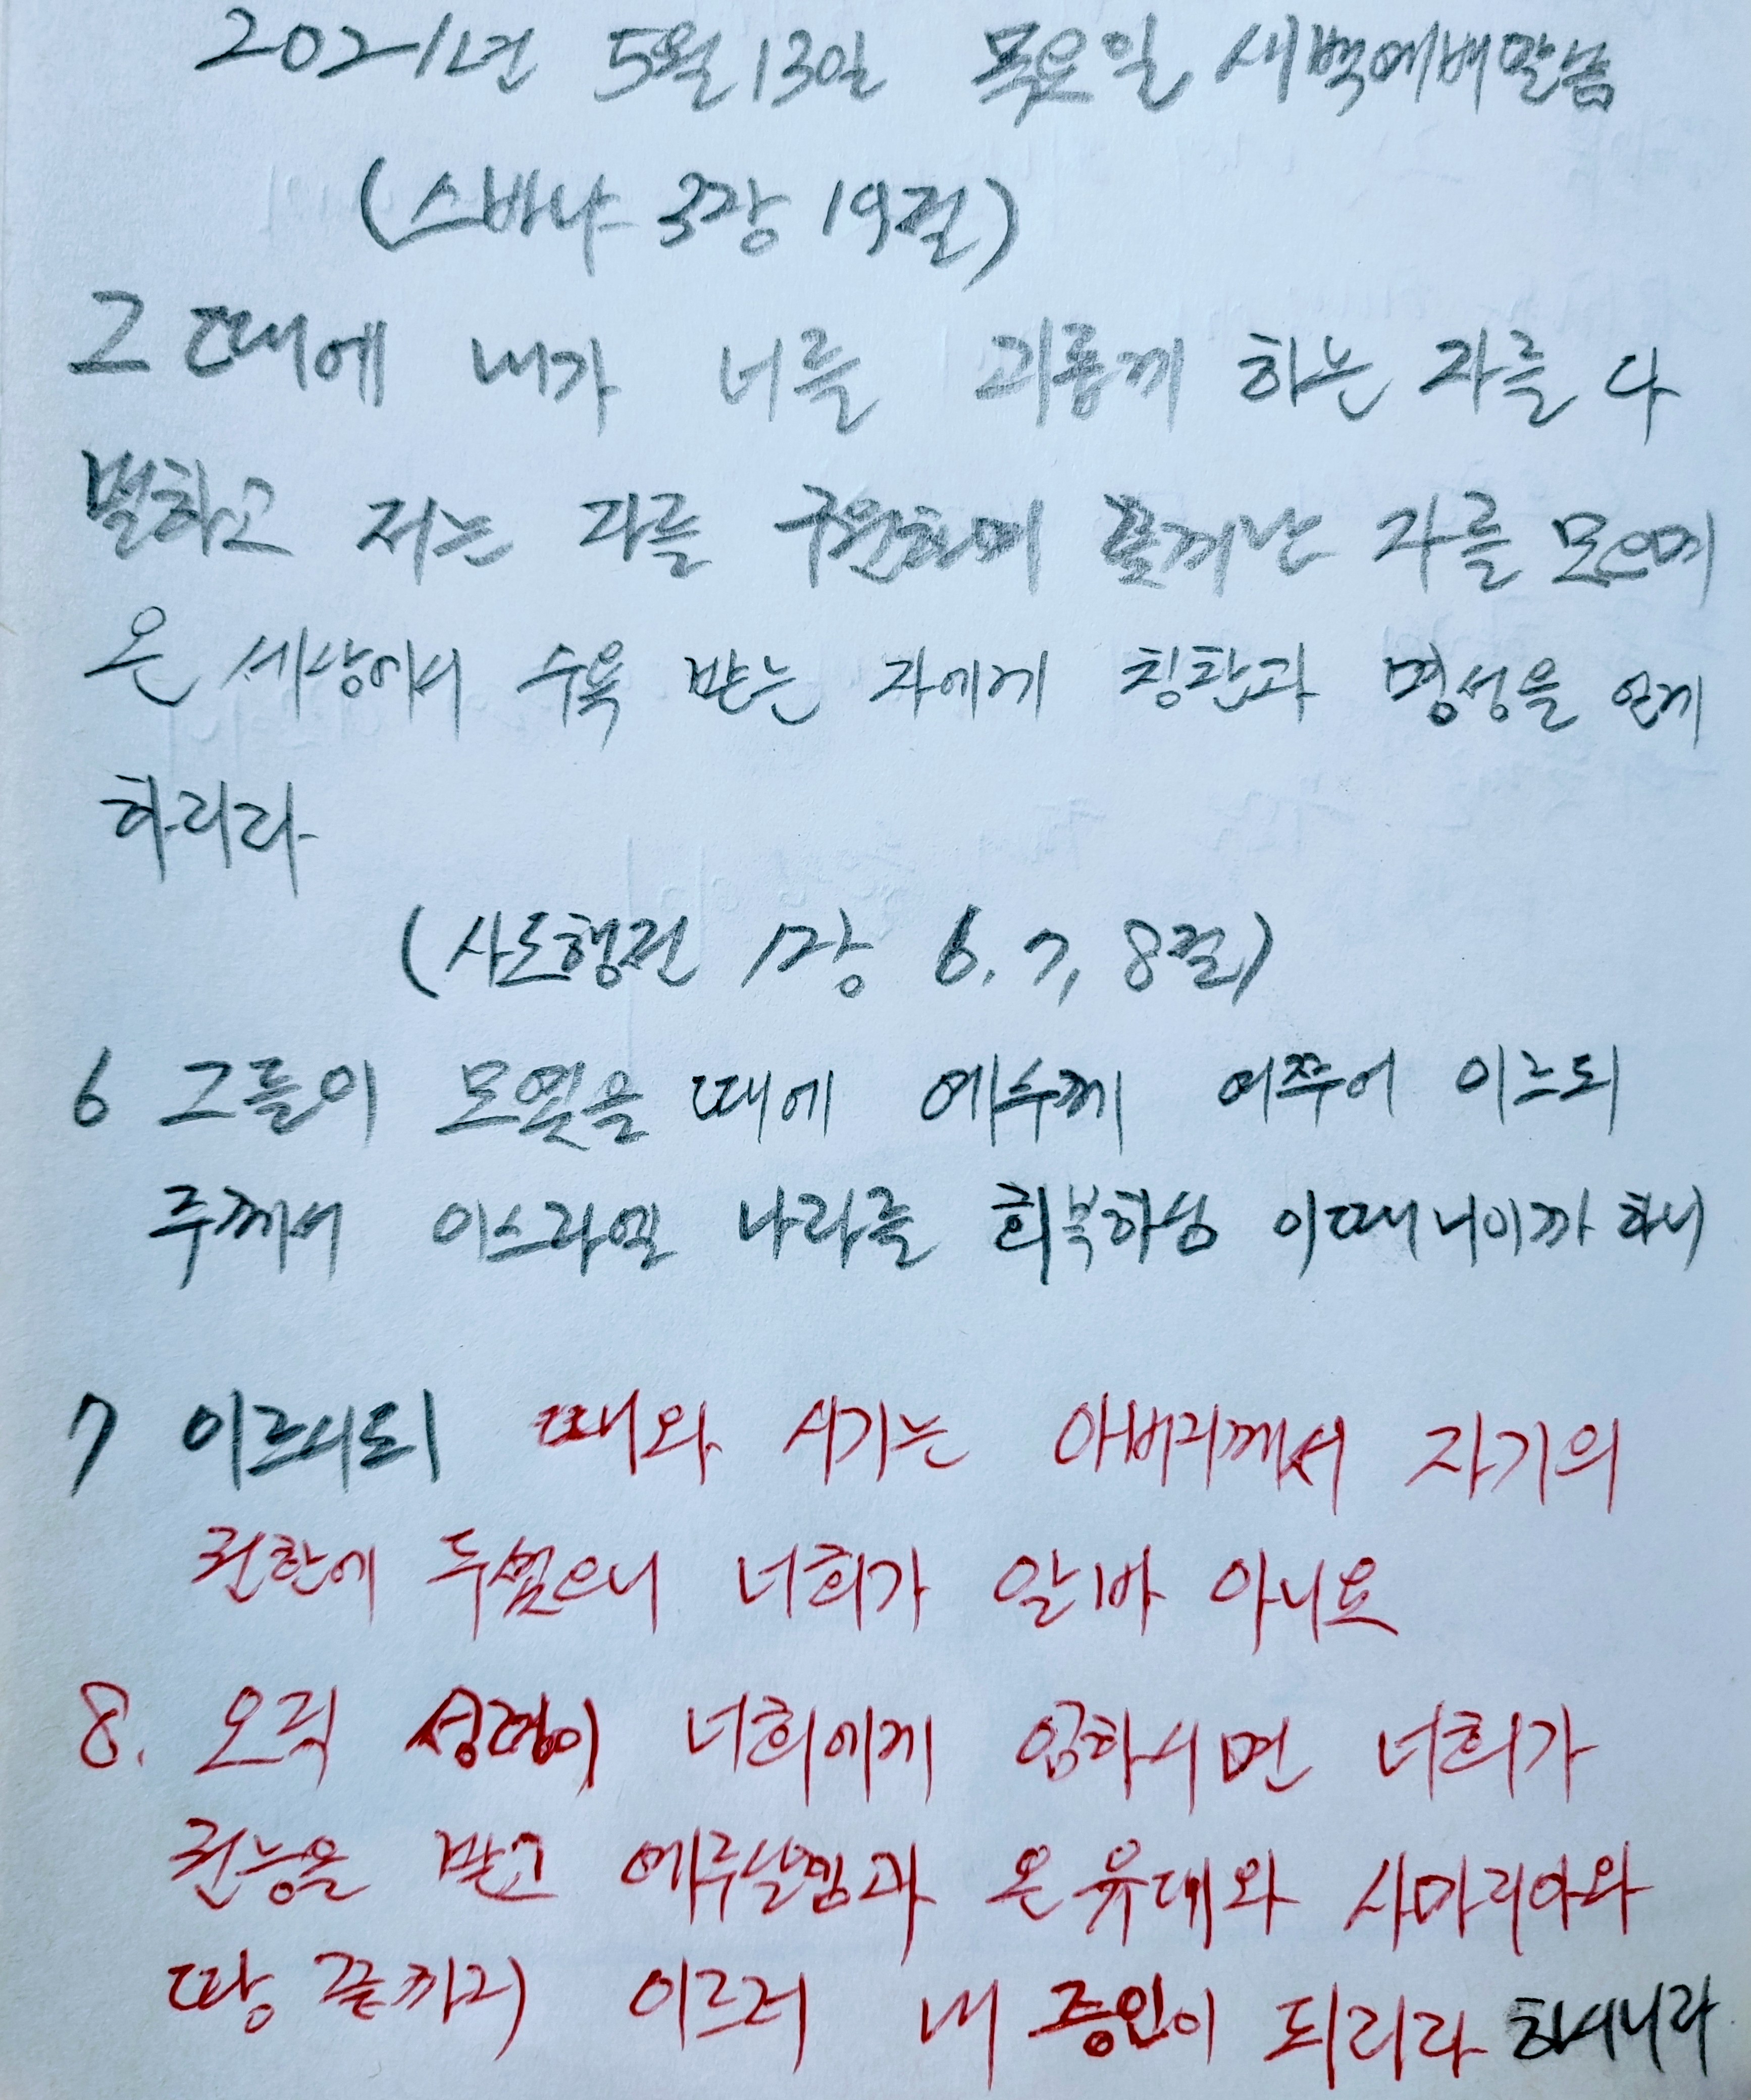 2021년 5월 13일 목요일 새벽예배말씀
(스바냐 3장 19절)
그 때에 내가 너를 괴롭게 하는 자를 다
벌하고 저는 자를 구원하며 쫓겨난 자를 모으며
온 세상에서 수욕 받는 자에게 칭찬과 명성을 얻게
하리라
(사도행전 1장 6, 7, 8절)
6 그들이 모였을 때에 예수께 여쭈어 이르되
주께서 이스라엘 나라를 회복하심 이때니이까 하니
7 이르시되 때와 시기는 아버지께서 자기의
권한에 두셨으니 너희가 알바 아니요
8. 오직 성령이 너희에게 임하시면 너희가
권능을 받고 예루살렘과 온 유대와 사마리아와
땅 끝까지 이르러 내 증인이 되리라 하시니라